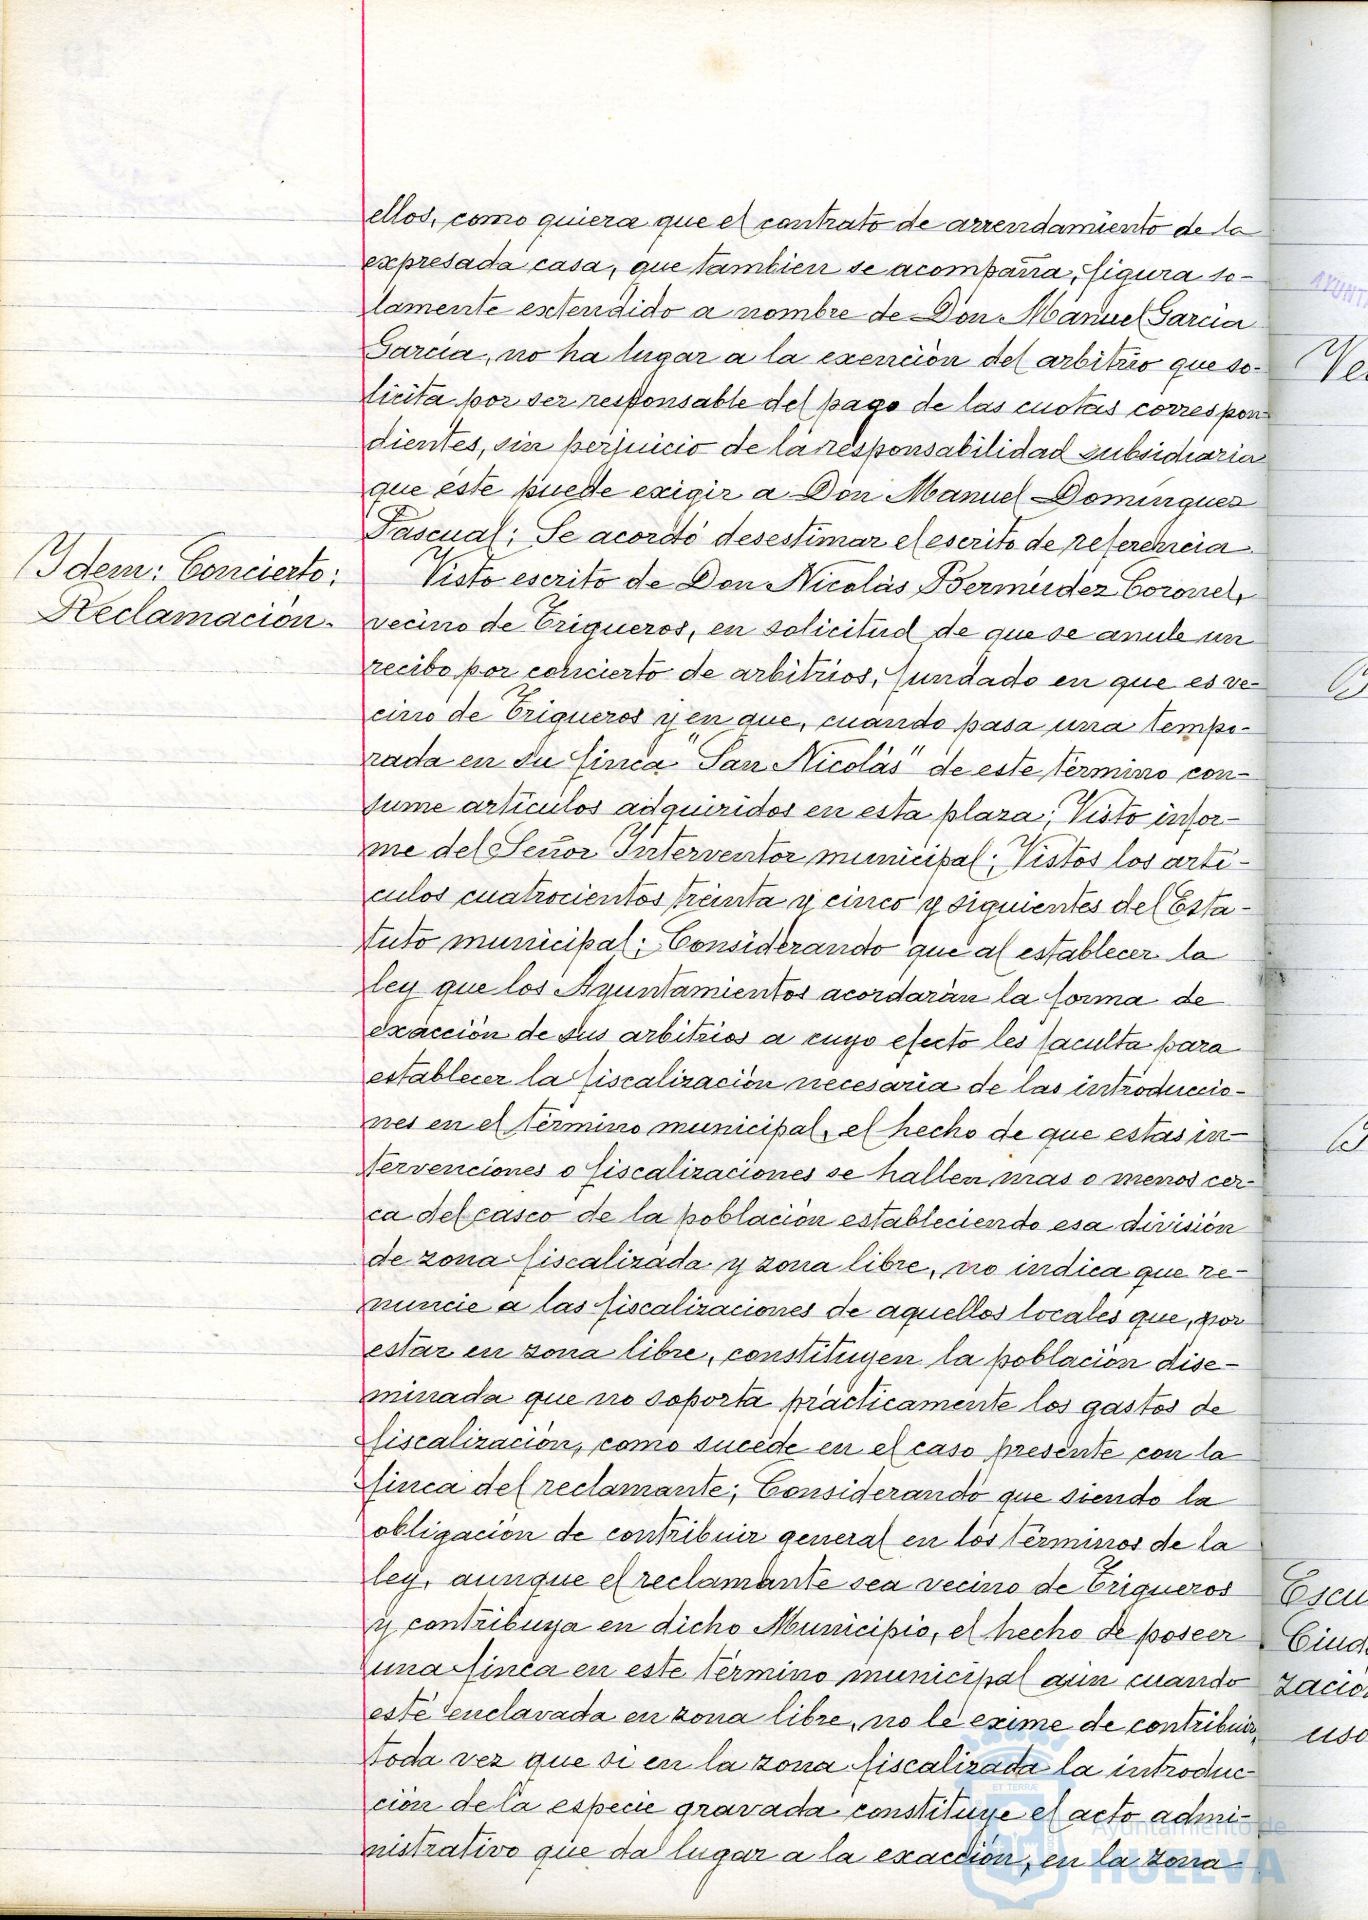 ellos, como quiera que el contrato de arrendamiento de la
expresada casa, que tambien se acompaña, figura so-
lamente extendido a nombre de Don Manuel García
García, no ha lugar a la exención del arbitrio que so-
licita por ser responsable del pago de las cuotas correspon-
dientes, sin perjuicio de la responsabilidad subsidiaria
que éste puede exigir a Don Manuel Domínguez
Pascual; Se acordó desestimar el escrito de referencia.
Idem: Concierto:
Reclamación.
Visto escrito de Don Nicolás Bermúdez Coronel,
vecino de Trigueros, en solicitud de que se anule un
recibo por concierto de arbitrios, fundado en que es ve-
cino de Trigueros y en que, cuando pasa una tempo-
rada en su finca "San Nicolás" de este término con-
sume artículos adquiridos en esta plaza; Visto infor-
me del Señor Interventor municipal; Vistos los artí-
culos cuatrocientos treinta y cinco y siguientes del Esta-
tuto municipal; Considerando que al establecer la
ley que los Ayuntamientos acordarán la forma de
exacción de sus arbitrios a cuyo efecto les faculta para
establecer la fiscalización necesaria de las introduccio-
nes en el término municipal, el hecho de que estas in-
tervenciones o fiscalizaciones se hallen mas o menos cer-
ca del casco de la población estableciendo esa división
de zona fiscalizada y zona libre, no indica que re-
nuncie a las fiscalizaciones de aquellos locales que, por
estar en zona libre, constituyen la población dise-
minada que no soporta prácticamente los gastos de
fiscalización, como sucede en el caso presente con la
finca del reclamante; Considerando que siendo la
obligación de contribuir general en los términos de la
ley, aunque el reclamante sea vecino de Trigueros
y contribuya en dicho Municipio, el hecho de poseer
una finca en este término municipal aún cuando
esté enclavada en zona libre, no le exime de contribuir,
toda vez que si en la zona fiscalizada la introduc-
ción de la especie gravada constituye el acto admi-
nistrativo que da lugar a la exacción, en la zona
AYUNT
Ve
Escu
Ciud
zació
uso
ET TERRÆ
Ayuntamiento de
HUELVA